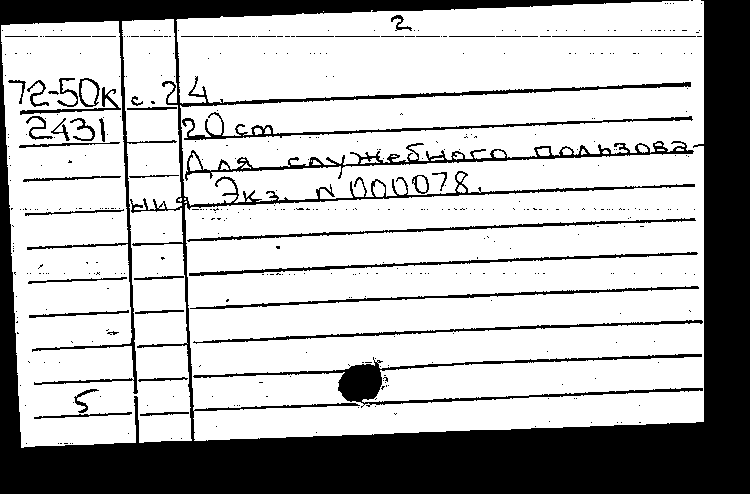 2
72-50к с. 24.
2431 20 cm.
Для служебного пользова-
ния. Экз. N 000078.
5